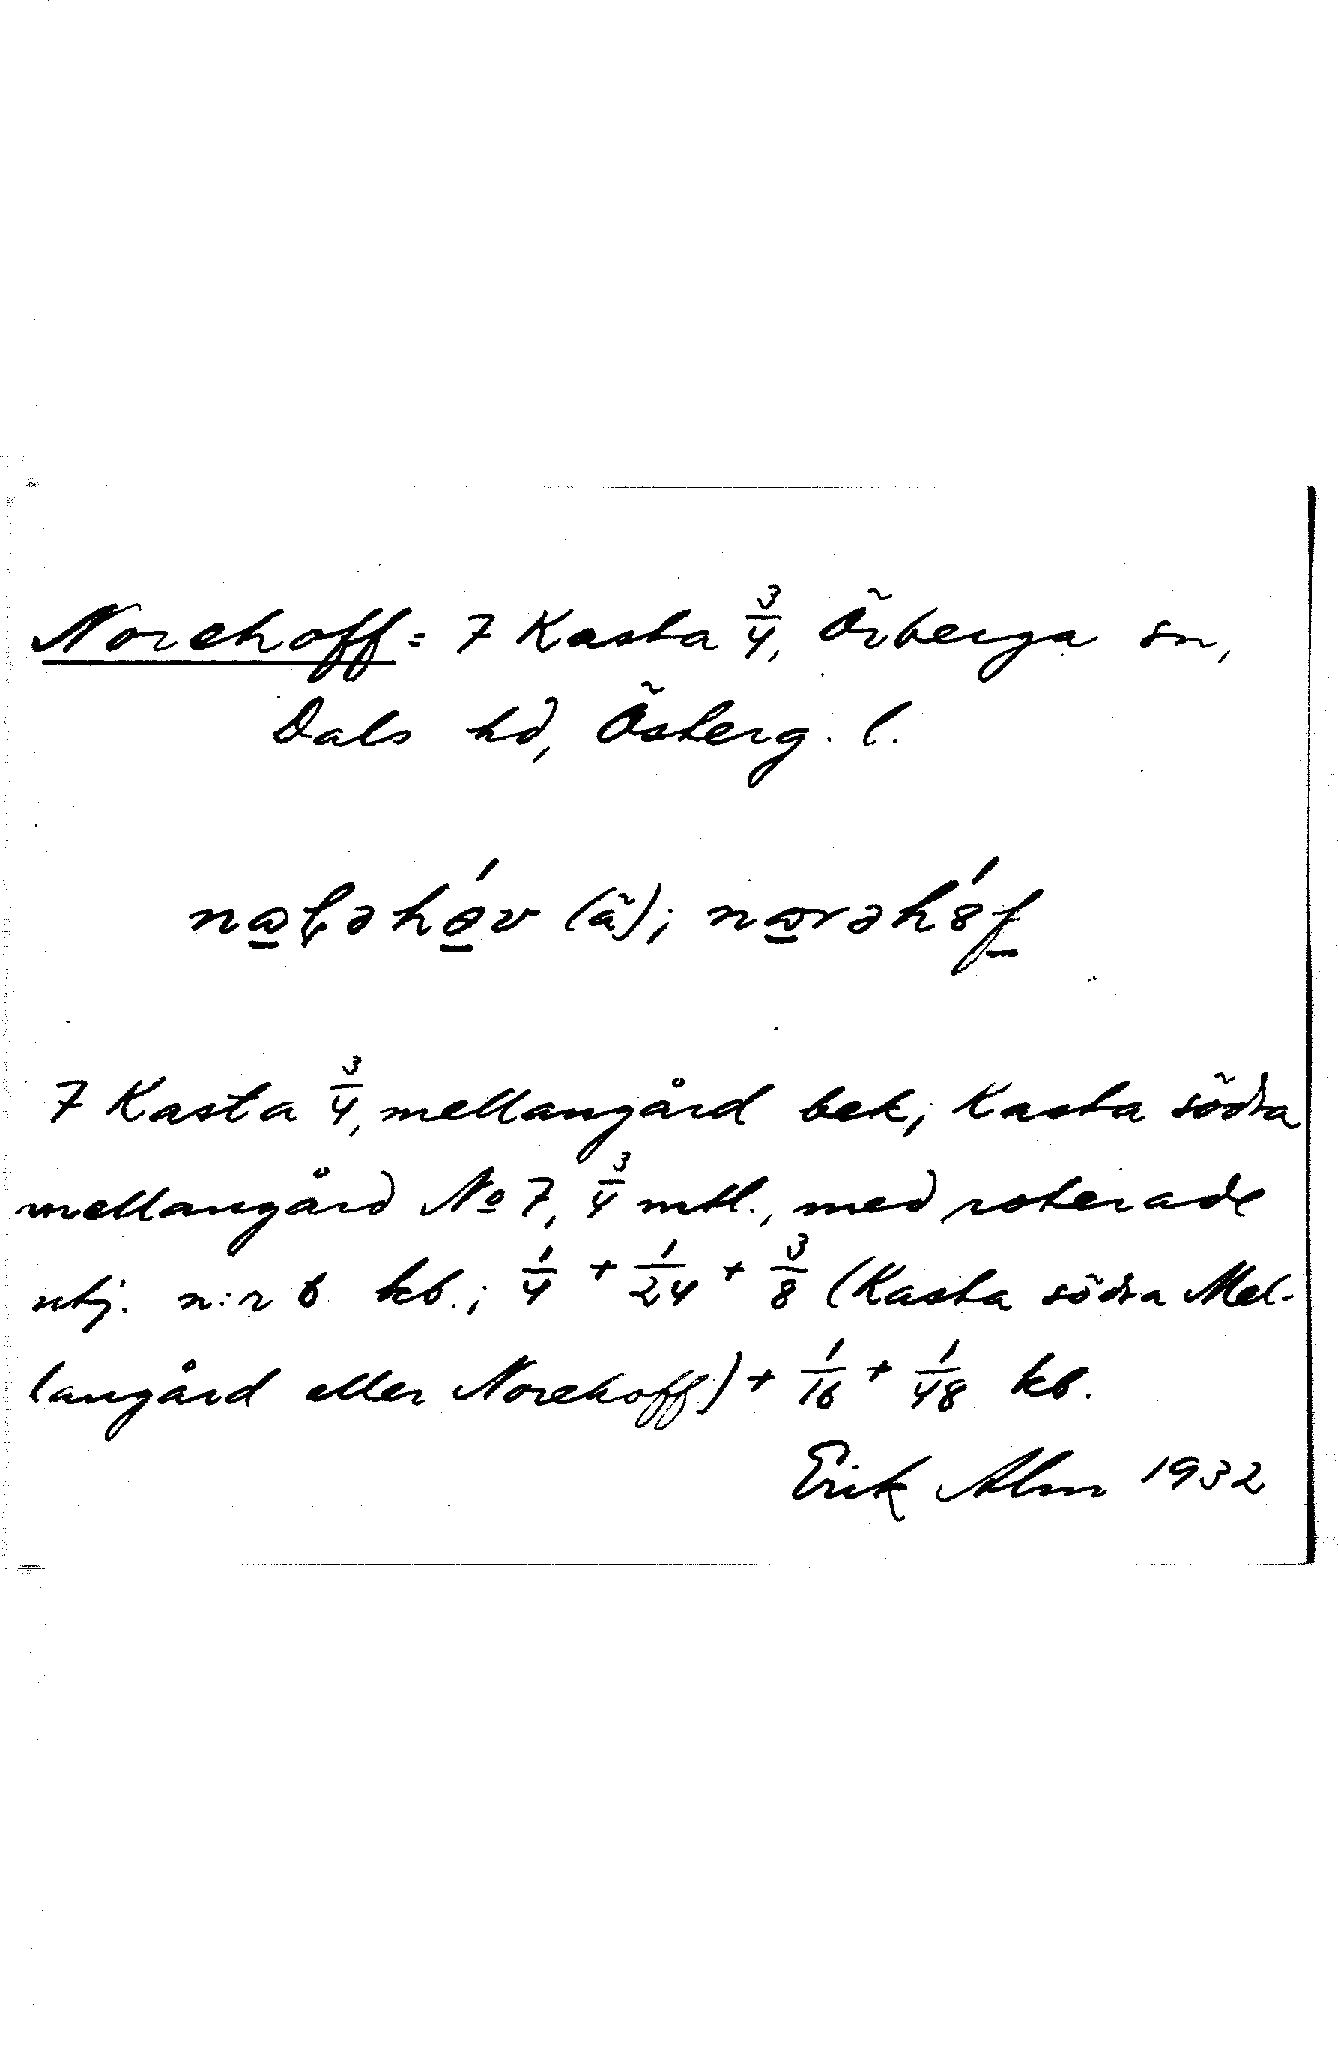 Norehoff = 7 Kasta 3/4, Örberga sn,
Dals hd, Österg. l.
7 Kasta 3/4, mellangård bek; Kasta södra
mellangård No 7, 3/4 mtl., med roterade
utj. n:r 6 kb.; 1/4 + 1/24 + 3/8 (Kasta södra Mel-
langård eller Norehoff) + 1/16 + 1/48 kb.
Erik Alm 1932